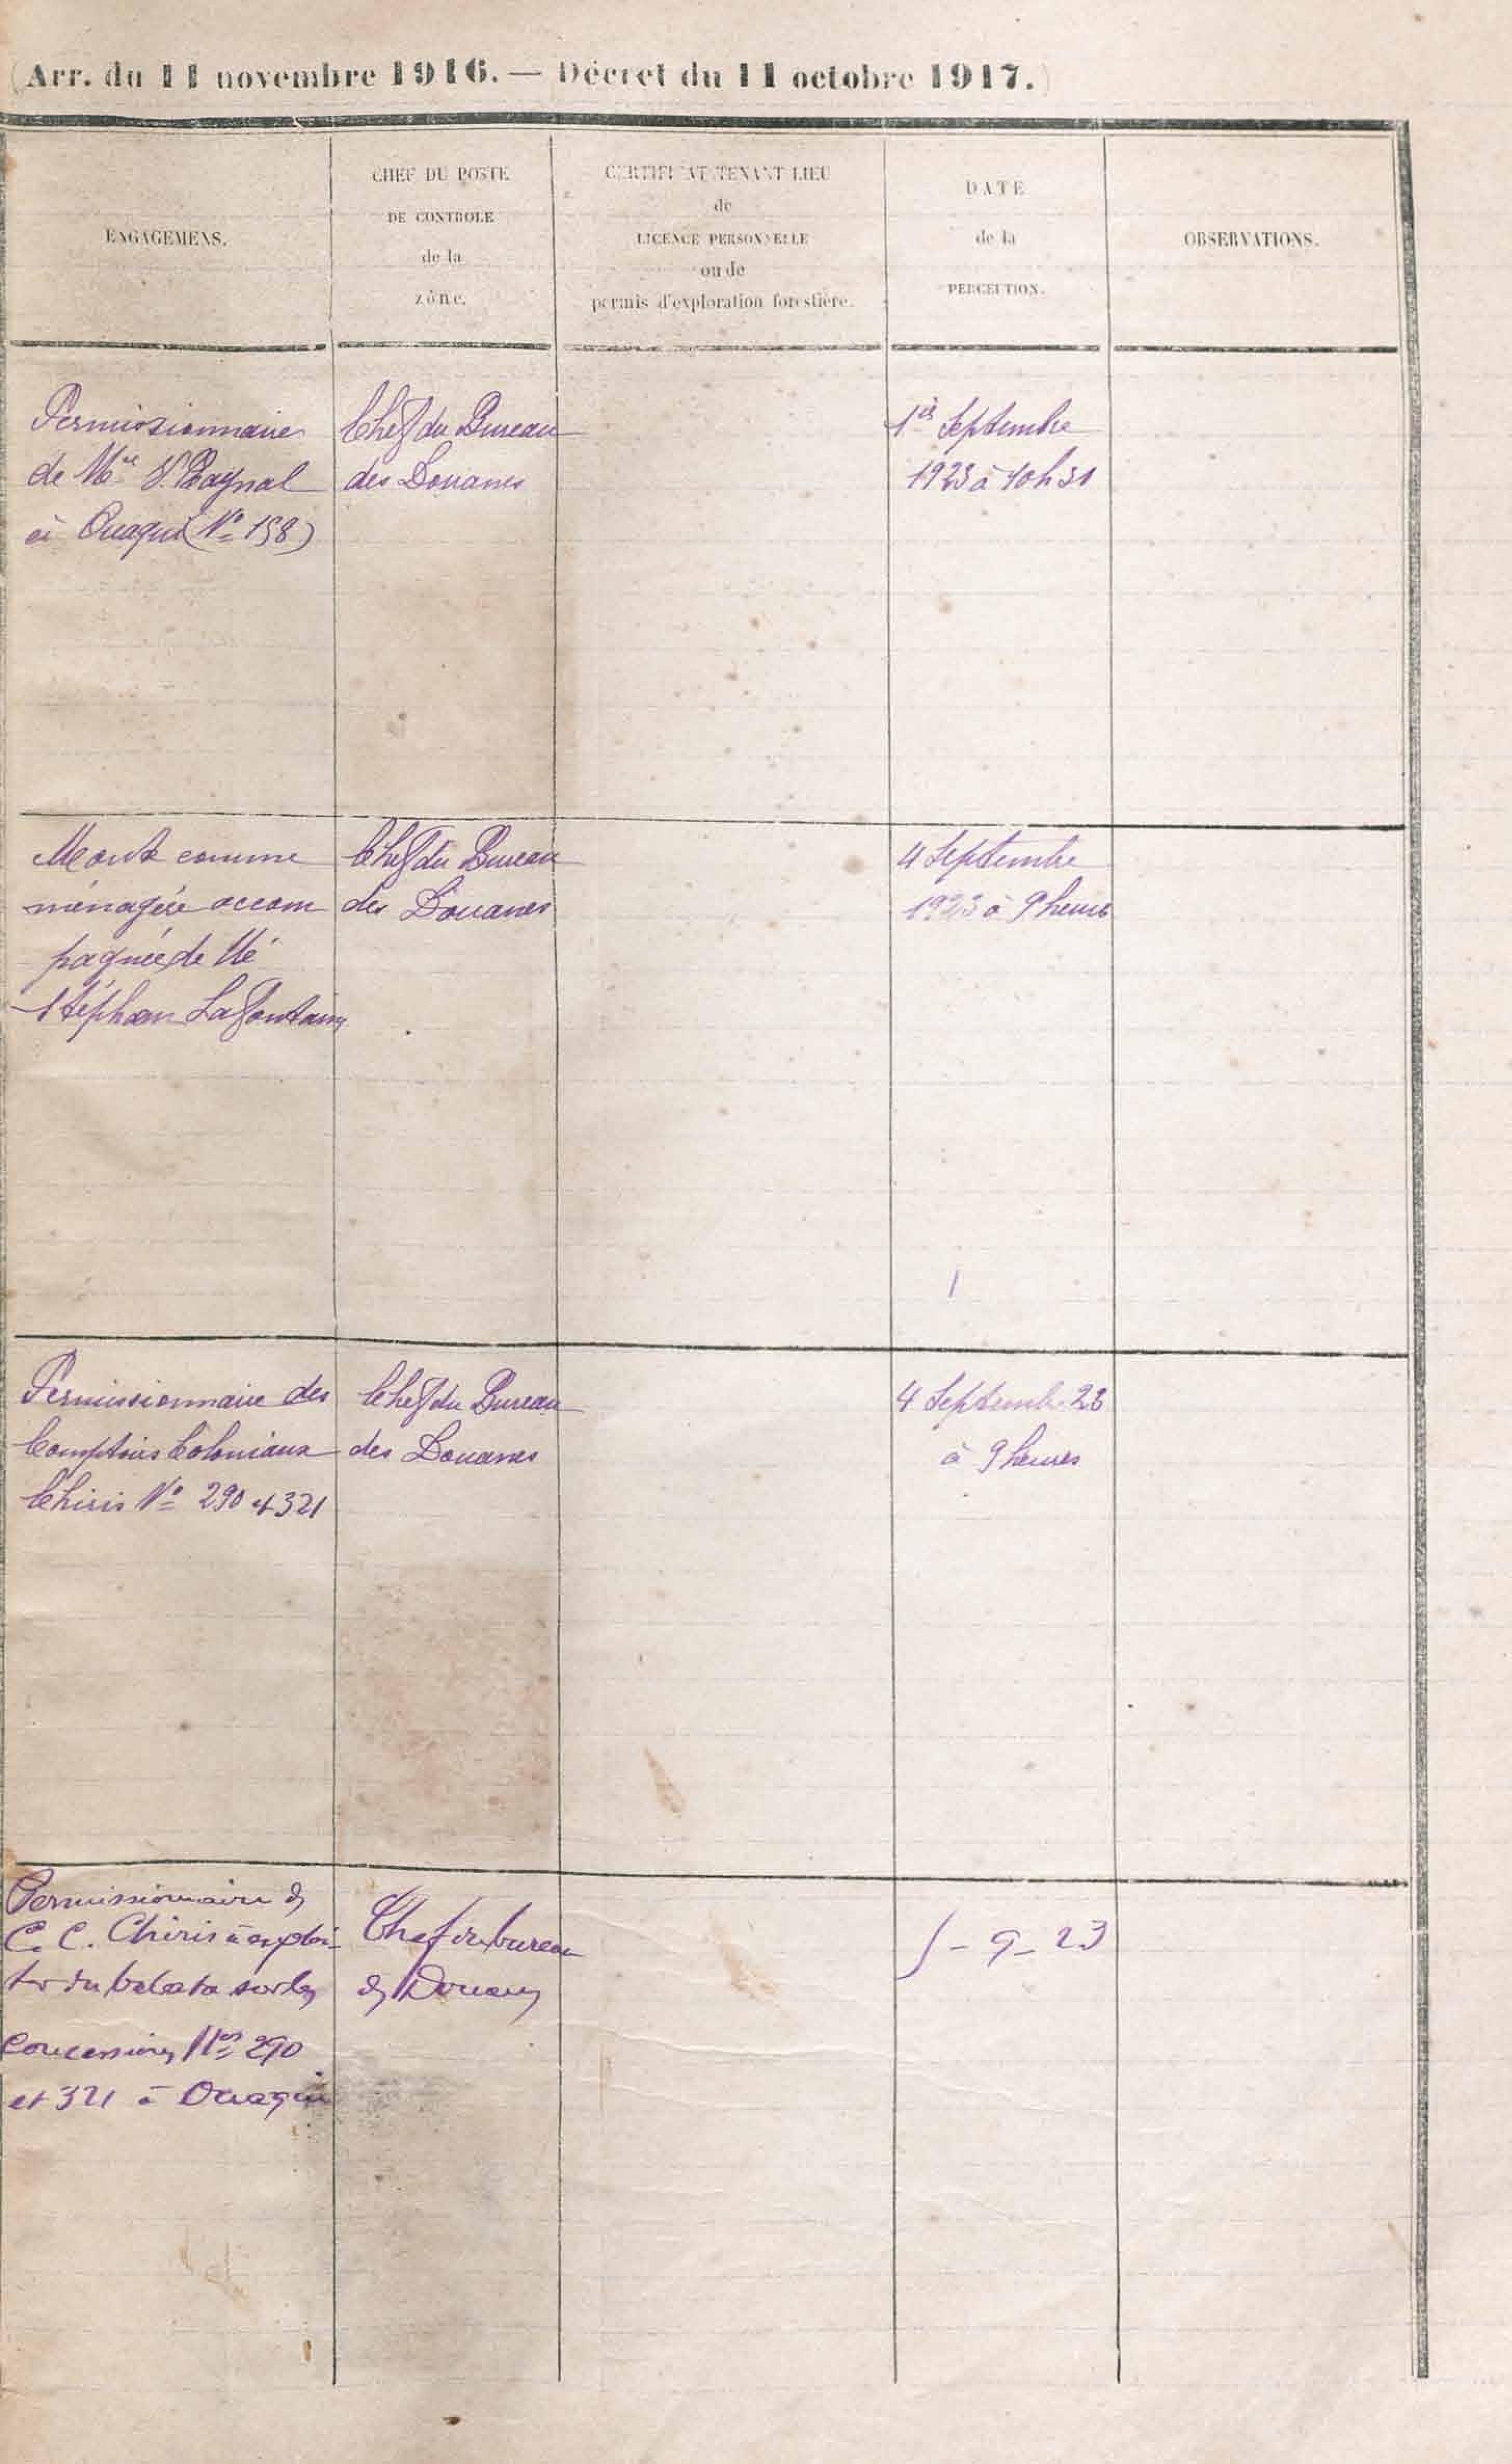 (Arr. du 11 novembre 1916. — Décret du 11 octobre 1917.)
ENGAGEMENS.
CHEF DU POSTE
DE CONTROLE
de la
zône.
CERTIFICAT TENANT LIEU
de
LICENCE PERSONNELLE
ou de
permis d'exploration forestière.
DATE
de la
PERCEPTION.
OBSERVATIONS.
Permissionnaire
de Mr V. Raynal
à Ouaqui (No 158)
Chef du Bureau
des Douanes
1er Septembre
1923 à 10h 31
Monte comme
ménagère accom
pagnée de
Stéphan Lafontaine
Chef du Bureau
des Douanes
4 Septembre
1923 à 9 heures
Permissionnaire des
Comptoirs Coloniaux
Chiris No 290 et 321
Chef du Bureau
des Douanes
4 Septembre 23
à 9 heures
Permissionnaire des
C. C. Chiris à exploi-
ter du balata sur les
concessions Nos 290
et 321 à Ouaqui
Chef du bureau
des Douanes
5-9-23